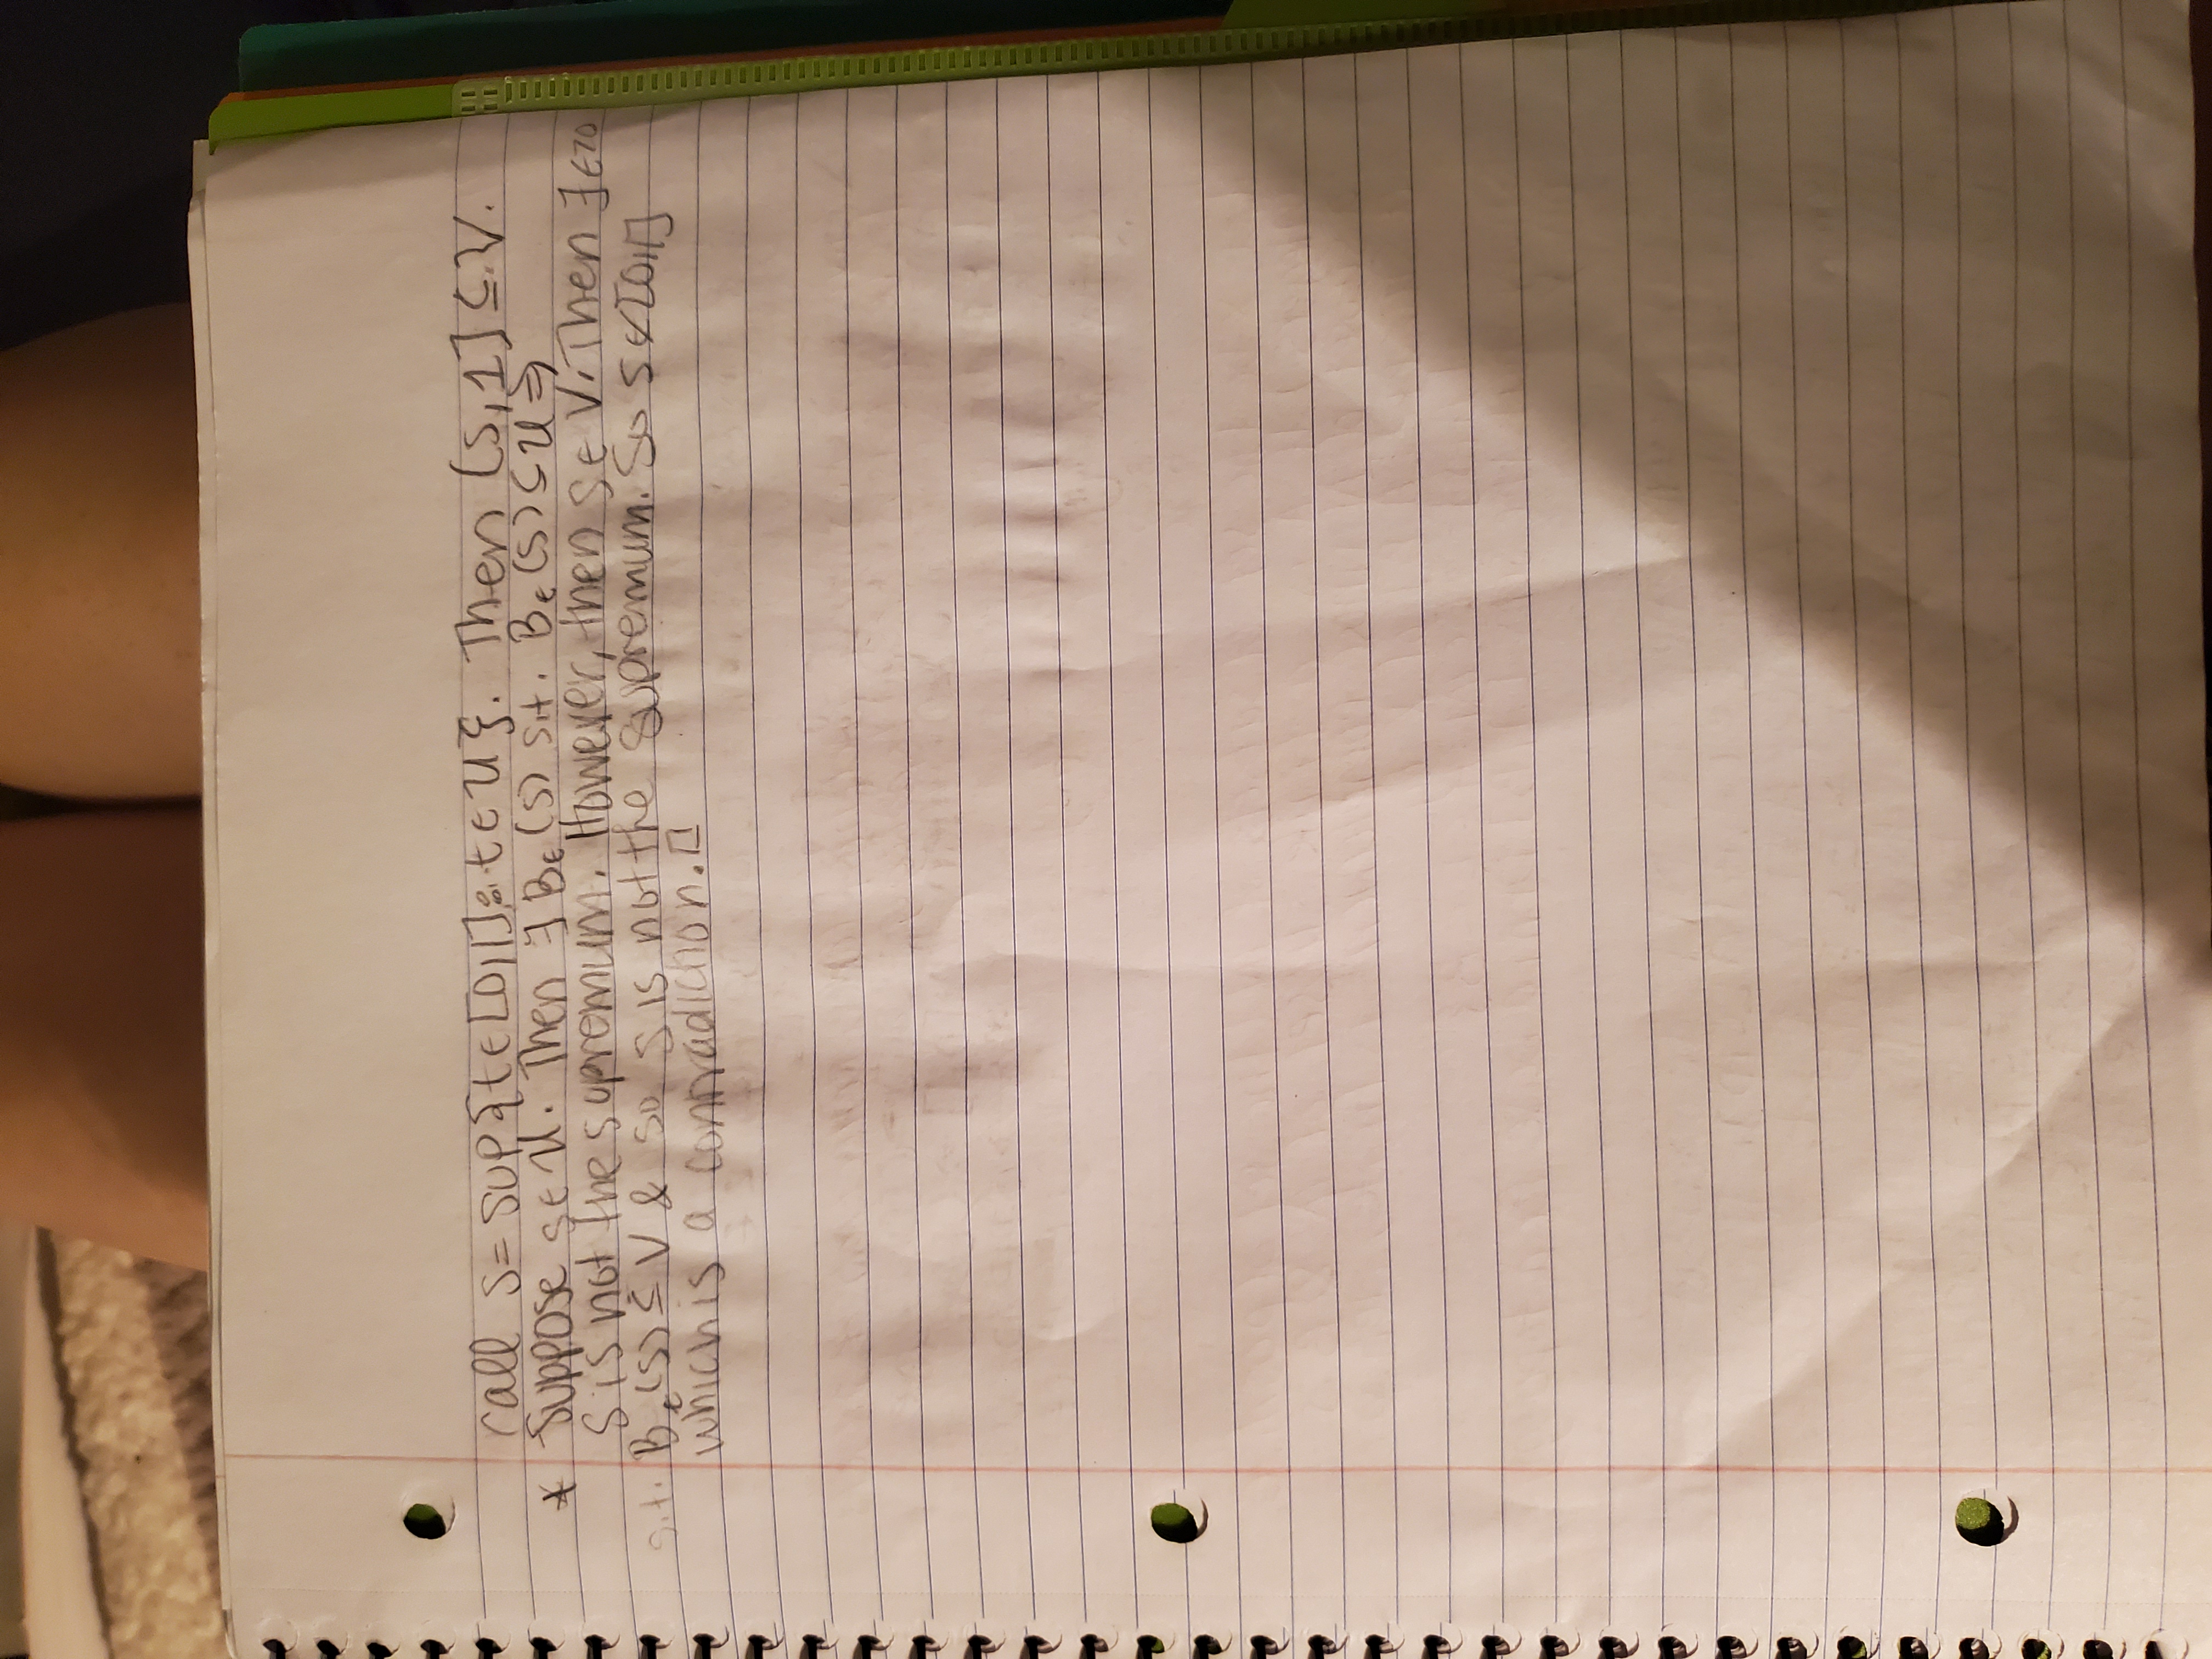 call S = sup{t∈[0,1]: t∈U}. Then (s,1]⊆V.
* Suppose S∈U. Then ∃ Bε(s) s.t. Bε(s)⊆U ⇒
S is not the supremum. However, then S∈V. Then ∃ε>0
s.t. Bε(s)⊆V & so S is not the supremum. So S∉[0,1]
which is a contradiction. □